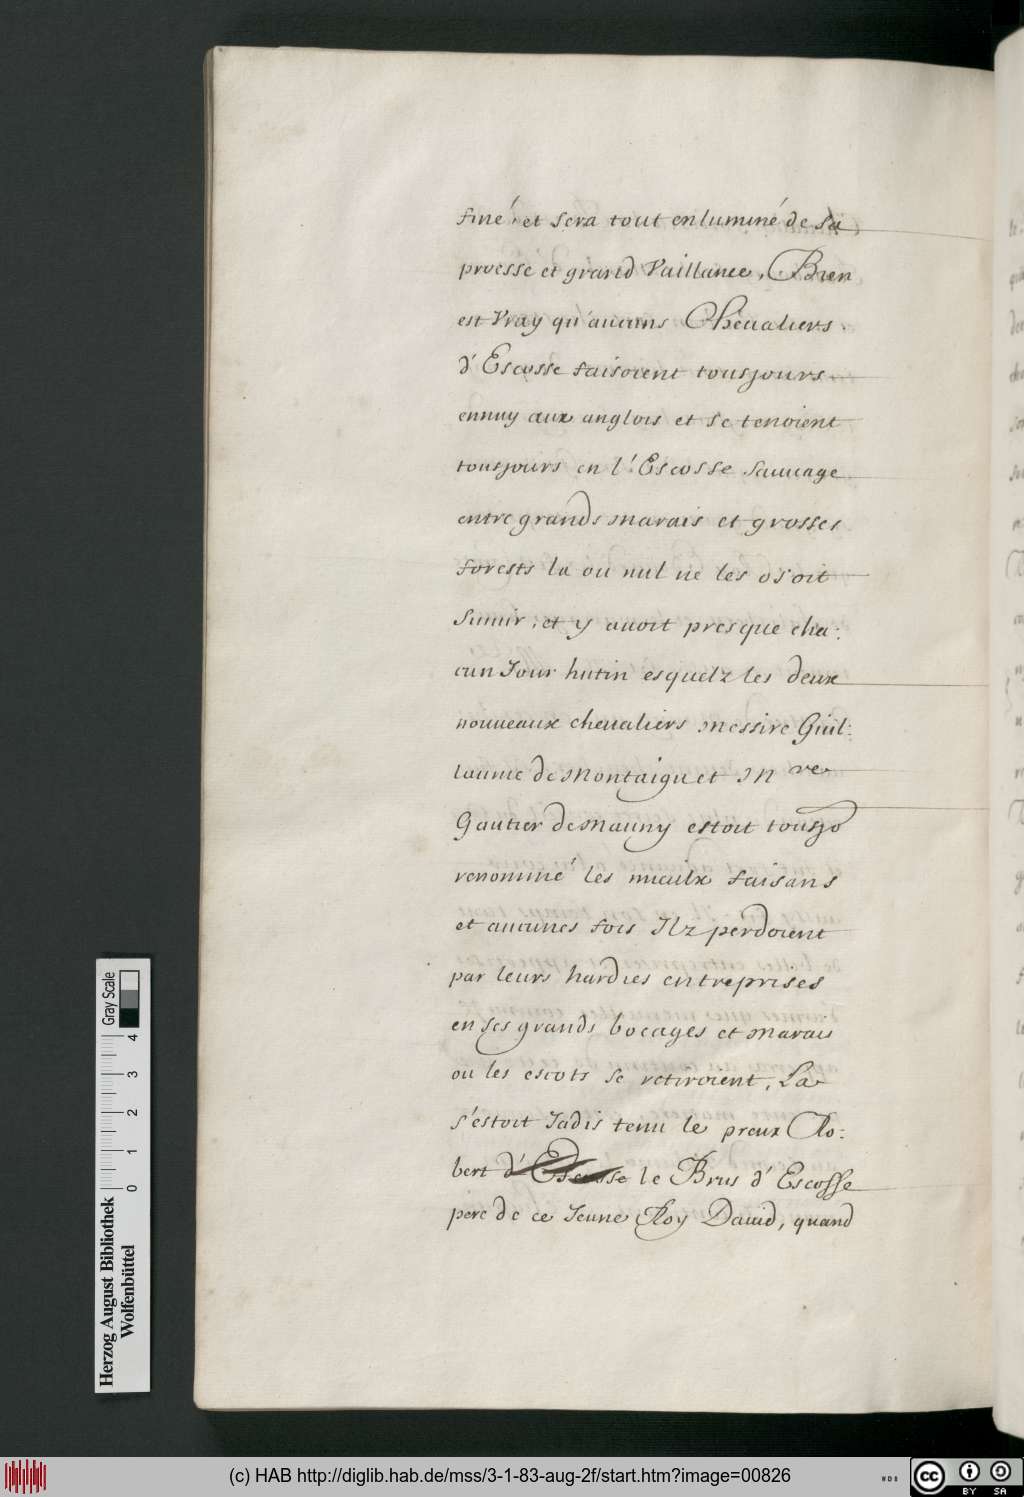 finé, et sera tout enluminé de sa
proesse et grand Vaillance, Bien
est Vray qu'aucuns Cheualiers
d'Escosse faisoient tousjours
ennuy aux anglois et se tenoient
tousjours en l'Escosse sauuage
entre grands marais et grosses
forests la ou nul ne les osoit
suiuir, et y auoit presque cha:
cun Jour hutin esquelz les deux
nouueaux cheualiers messire Guil:
laume de Montaigu et Mre
Gautier de Mauny estoit tousjo
renommé les mieulx faisans
et aucunes fois Ilz perdoient
par leurs hardies entreprises
en ses grands bocages et Marais
ou les escots se retiroient, La
s'estoit Jadis tenu le preux Ro:
bert d'Escosse le Brus d'Escosse
pere de ce Jeune Roy Dauid, quand
Herzog August Bibliothek
Wolfenbüttel
0 1 2 3 4
Gray Scale
(c) HAB http://diglib.hab.de/mss/3-1-83-aug-2f/start.htm?image=00826
WDB
cc BY SA